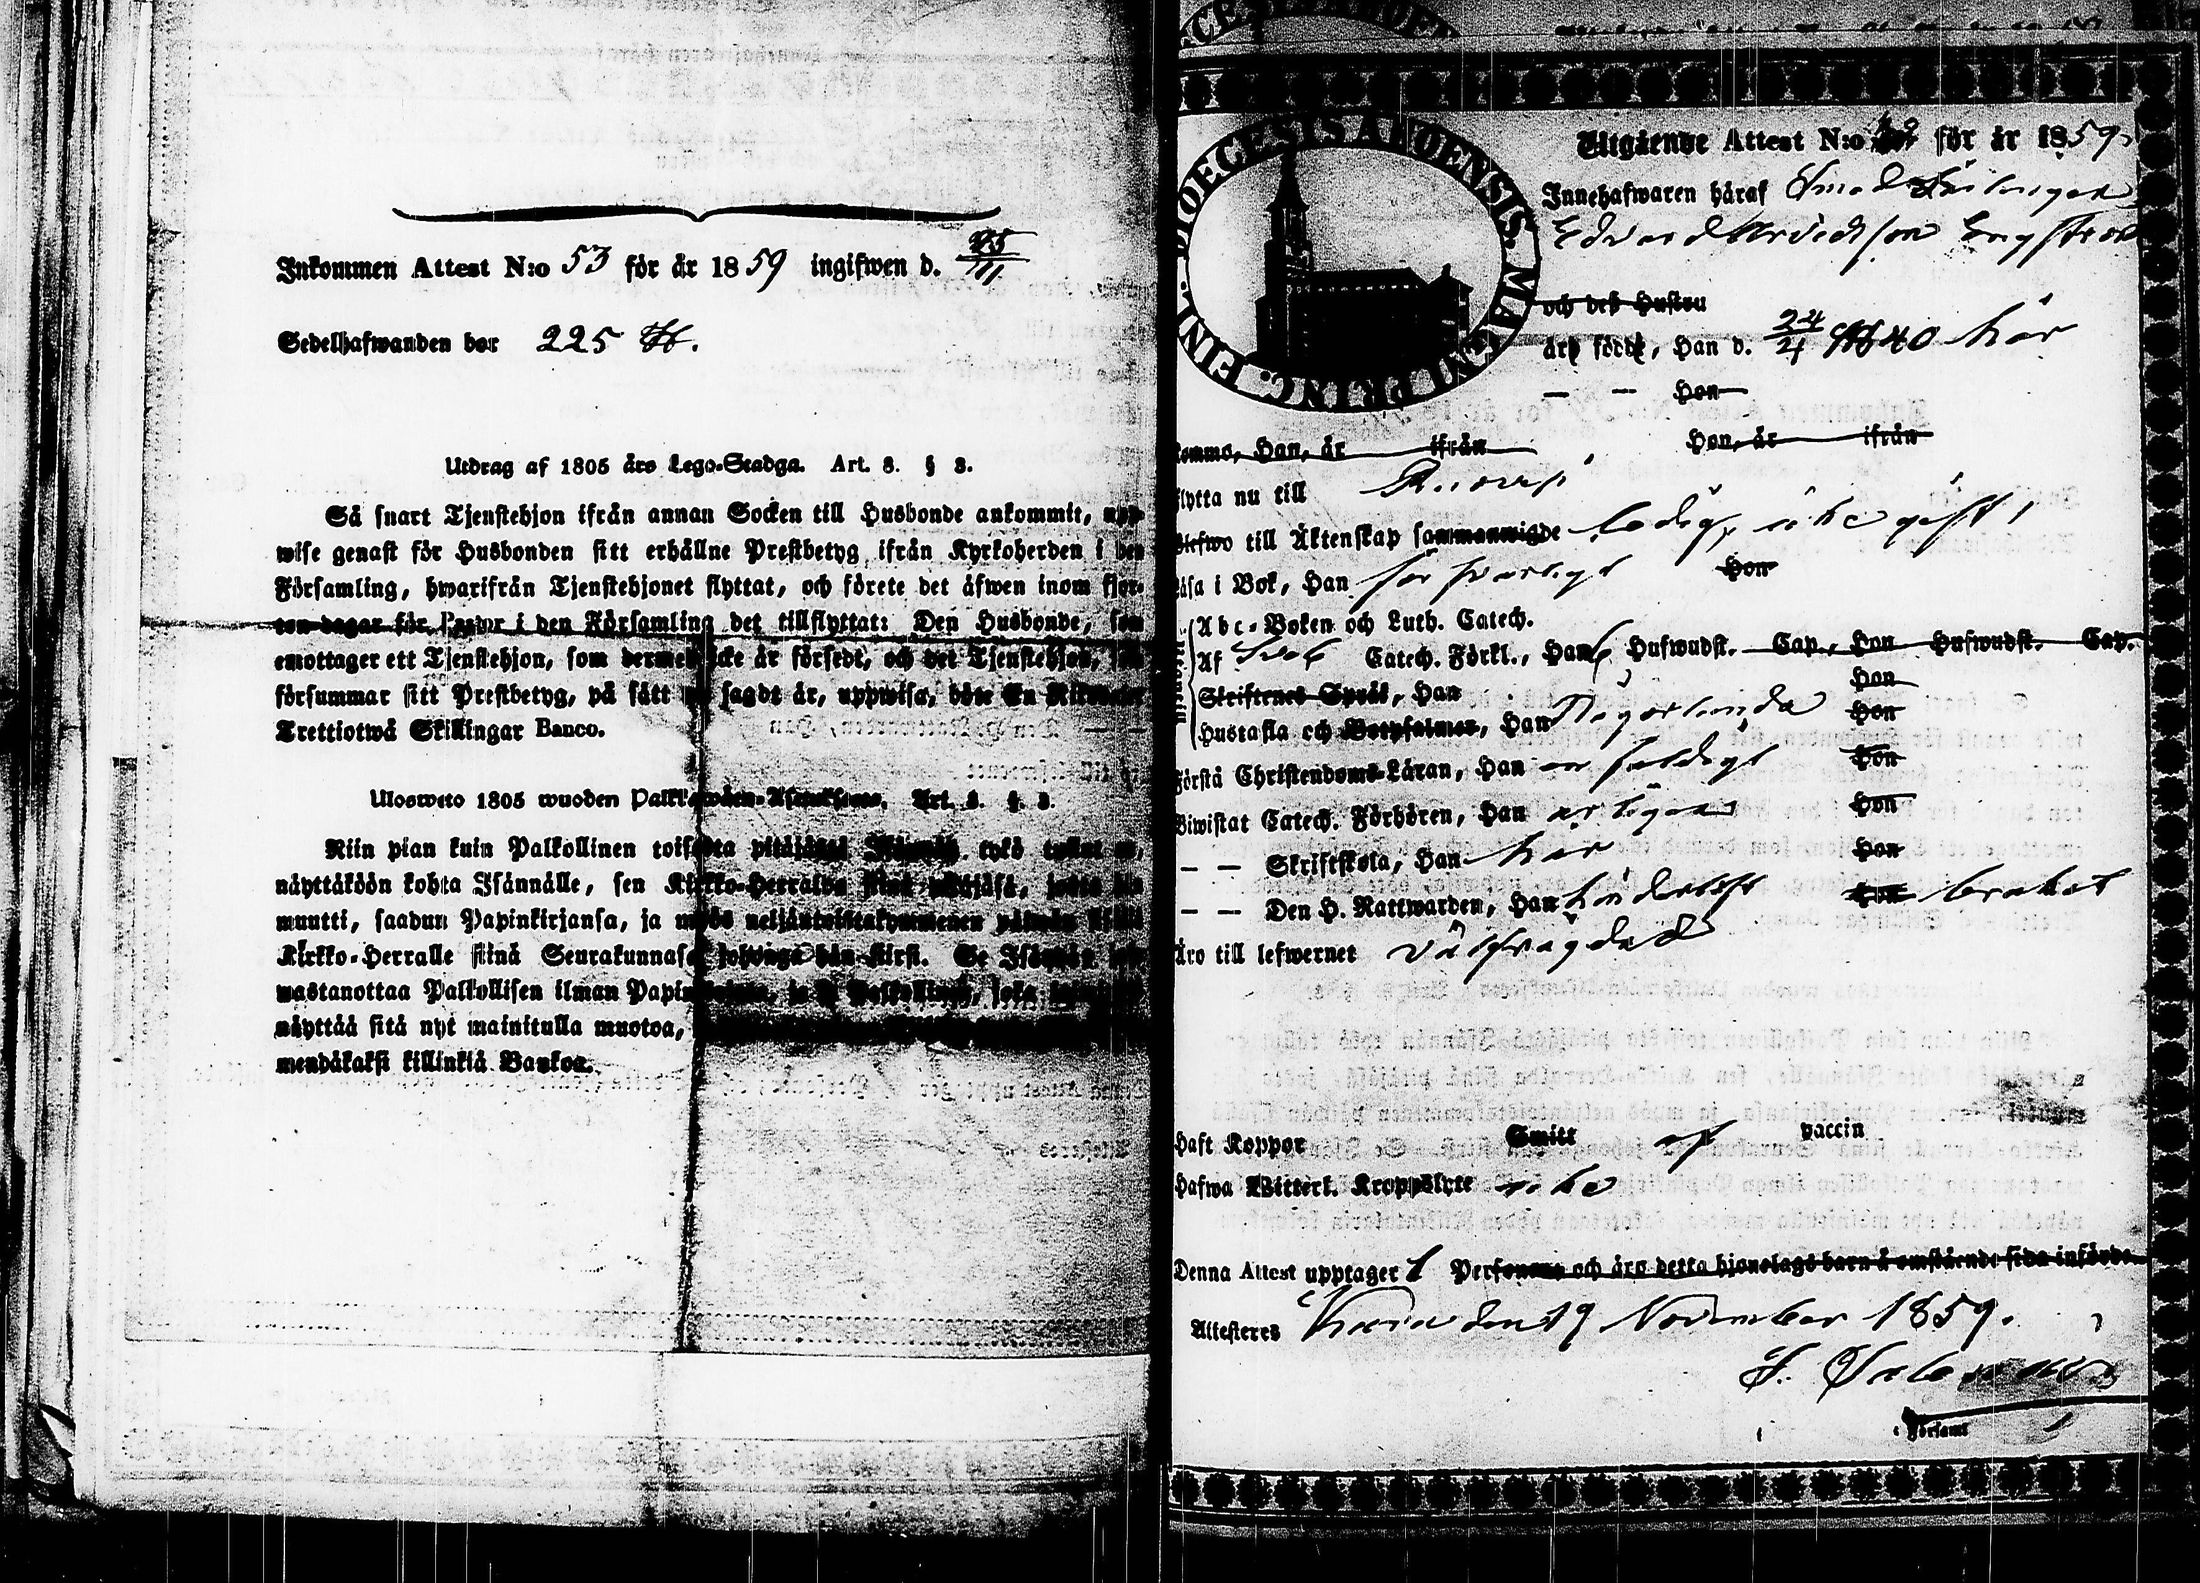 Inkommen Attest N:o 53 för år 1859 ingifwen d. 25/11
Sedelhafwanden bor 225
Utdrag af 1805 års Lego-Stadga. Art. 8. § 3.
Så snart Tjenstehjon ifrån annan Socken till Husbonde ankommit, upp-
wise genast för Husbonden sitt erhållne Prestbetyg ifrån Kyrkoherden i den
Församling, hwarifrån Tjenstehjonet flyttat, och förete det äfwen inom fjor-
ton dagar för Pastor i den Församling det tillflyttat: Den Husbonde, som
emottager ett Tjenstehjon, som dermed icke är försedt, och det Tjenstehjon, som
försummar sitt Prestbetyg, på sätt sagdt är, uppwisa, böte En Riksdaler
Trettiotwå Skillingar Banco.
Ulosweto 1805 wuoden Palkkawäen-Asetuksesta. Art. 8. §. 3.
Niin pian kuin Palkollinen toisesta pitäjästä Isännän tykö tullut on,
näyttäköön kohta Isännälle, sen Kirkko-Herralda siinä pitäjäsä, josta hän
muutti, saadun Papinkirjansa, ja myös neljäntoistakymmenen päiwän sisällä
Kirkko-Herralle siinä Seurakunnasa johonga hän siirsi. Se Isäntä joka
wastanottaa Palkollisen ilman Papinkirjata, ja se Palkollinen, joka
näyttää sitä nyt mainitulla muotoa,
mendäkaksi killinkiä Bankoa.
DIOECESIS ABOENSIS. MAGNI PRINC. FINL.
Utgående Attest N:o för år 1859.
Innehafwaren häraf Smeds
Edvard Arvidsson Engström
och deß Hustru
äro födde, Han d. 24/4 1840 här
— — Hon
komma, Han, år ifrån Hon, år ifrån
flytta nu till
Blefwo till Äktenskap sammanwigde ledig, icke gift
Läsa i Bok, Han försvarligt Hon
Abc-Boken och Luth. Catech.
Af Sveb Catech. Förkl., Han 6 Hufwudst. Cap., Hon Hufwudst. Cap.
Skriftenes Språk, Han Hon
Hustafla och Botpsalmer, Han Hon
Förstå Christendoms-Läran, Han enfaldigt Hon
Biwistat Catech. Förhören, Han Hon
— — Skriftskola, Han här Hon
— — Den H. Nattwarden, Han Hon
Äro till lefwernet välfrägdad
Haft Koppor Smitt af vaccin
Hafwa Witterl. Kroppslyte icke
Denna Attest upptager 1 Personer och äro detta hjonelags barn å omstående sida införde.
Attesteres den 19 November 1859.
i Församl